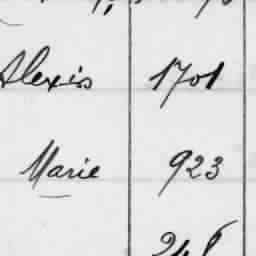 Alexis 1701
Marie 923